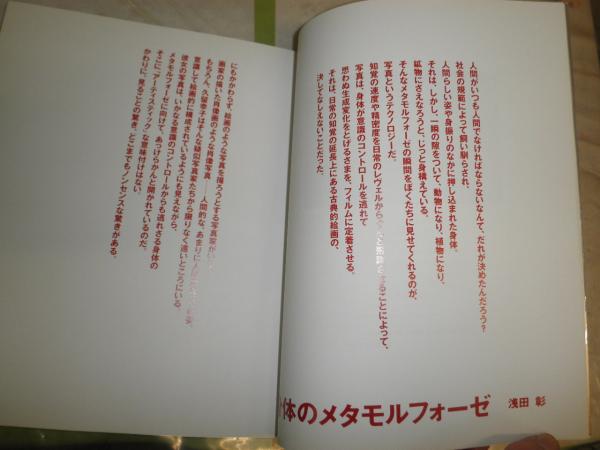 人間がいつも人間でなければならないなんて、だれが決めたんだろう?
社会の規範によって飼い馴らされ、
人間らしい姿や身振りのなかに押し込まれた身体。
それは、しかし、一瞬の隙をついて、動物になり、植物になり、
鉱物にさえなろうと、じっと身構えている。
そんなメタモルフォーゼの瞬間をぼくたちに見せてくれるのが、
写真というテクノロジーだ。
知覚の速度や精密度を日常のレヴェルから ることによって、
写真は、身体が意識のコントロールを逃れて
思わぬ生成変化をとげるさまを、フィルムに定着させる。
それは、日常の知覚の延長上にある古典的絵画の、
決してなしえないことだった。
体のメタモルフォーゼ
浅田 彰
にもかかわらず、絵画のような写真を撮ろうとする写真家がいる。
画家の描いた肖像画のような肖像写真——人間的な、あまりに人
もちろん、久留幸子はそんな疑似写真家たちから限りなく遠いところにいる。
意識して絵画的に構成されているようにも見えながら、
彼女の写真は、いかなる意識のコントロールからも逃れさる身体の
メタモルフォーゼに向けて、あっけらかんと開かれているのだ。
そこに、"アーティスティック"な意味付けはない。
かわりに、見ることの驚き、どこまでもノンセンスな驚きがある。